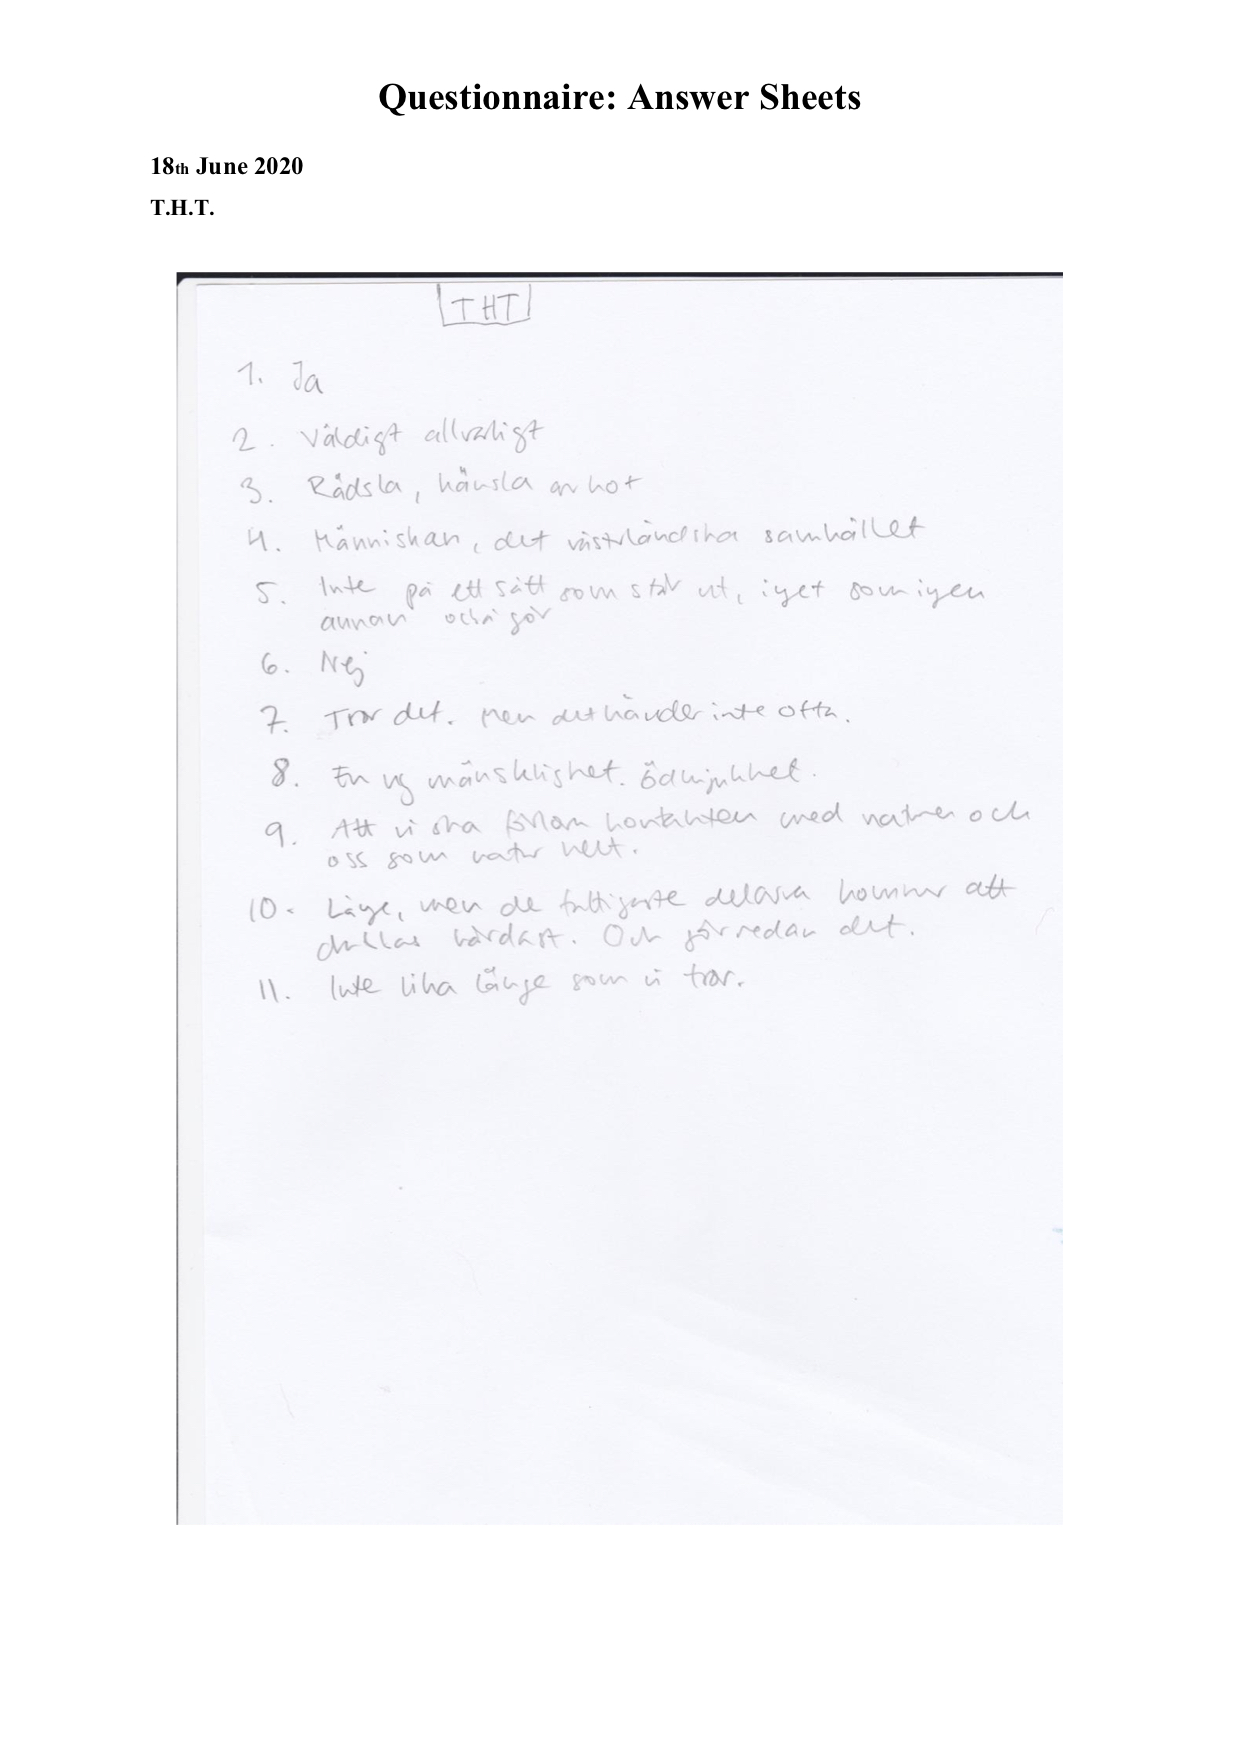 Questionnaire: Answer Sheets
18th June 2020
T.H.T.
THT
1. Ja
2. Väldigt allvarligt
3. Rädsla, känsla av hot
4. Människan, det västerländska samhället
5. Inte på ett sätt som står ut, inget som ingen
annan också gör
6. Nej
7. Tror det. Men det händer inte ofta.
8. En ny mänsklighet. Ödmjukhet.
9. Att vi ska förlora kontakten med naturen och
oss som natur helt.
10. Länge, men de fattigaste delarna kommer att
drabbas hårdast. Och gör redan det.
11. Inte lika länge som vi tror.